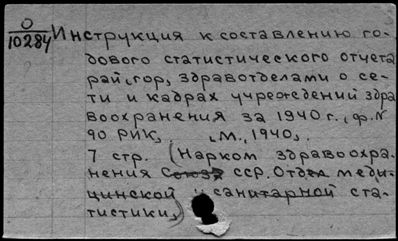 О
10284 Инструкция к составлению го-
дового статистического отчета
рай, гор, здравотделами о се-
ти и кадрах учреждений здра
воохранения за 1940 г., ф. N
90 РИК, , М., 1940,.
7 стр. (Нарком здравоохра-
нения Союза ССР. Отдел меди-
цинской и санитарной ста-
тистики,)